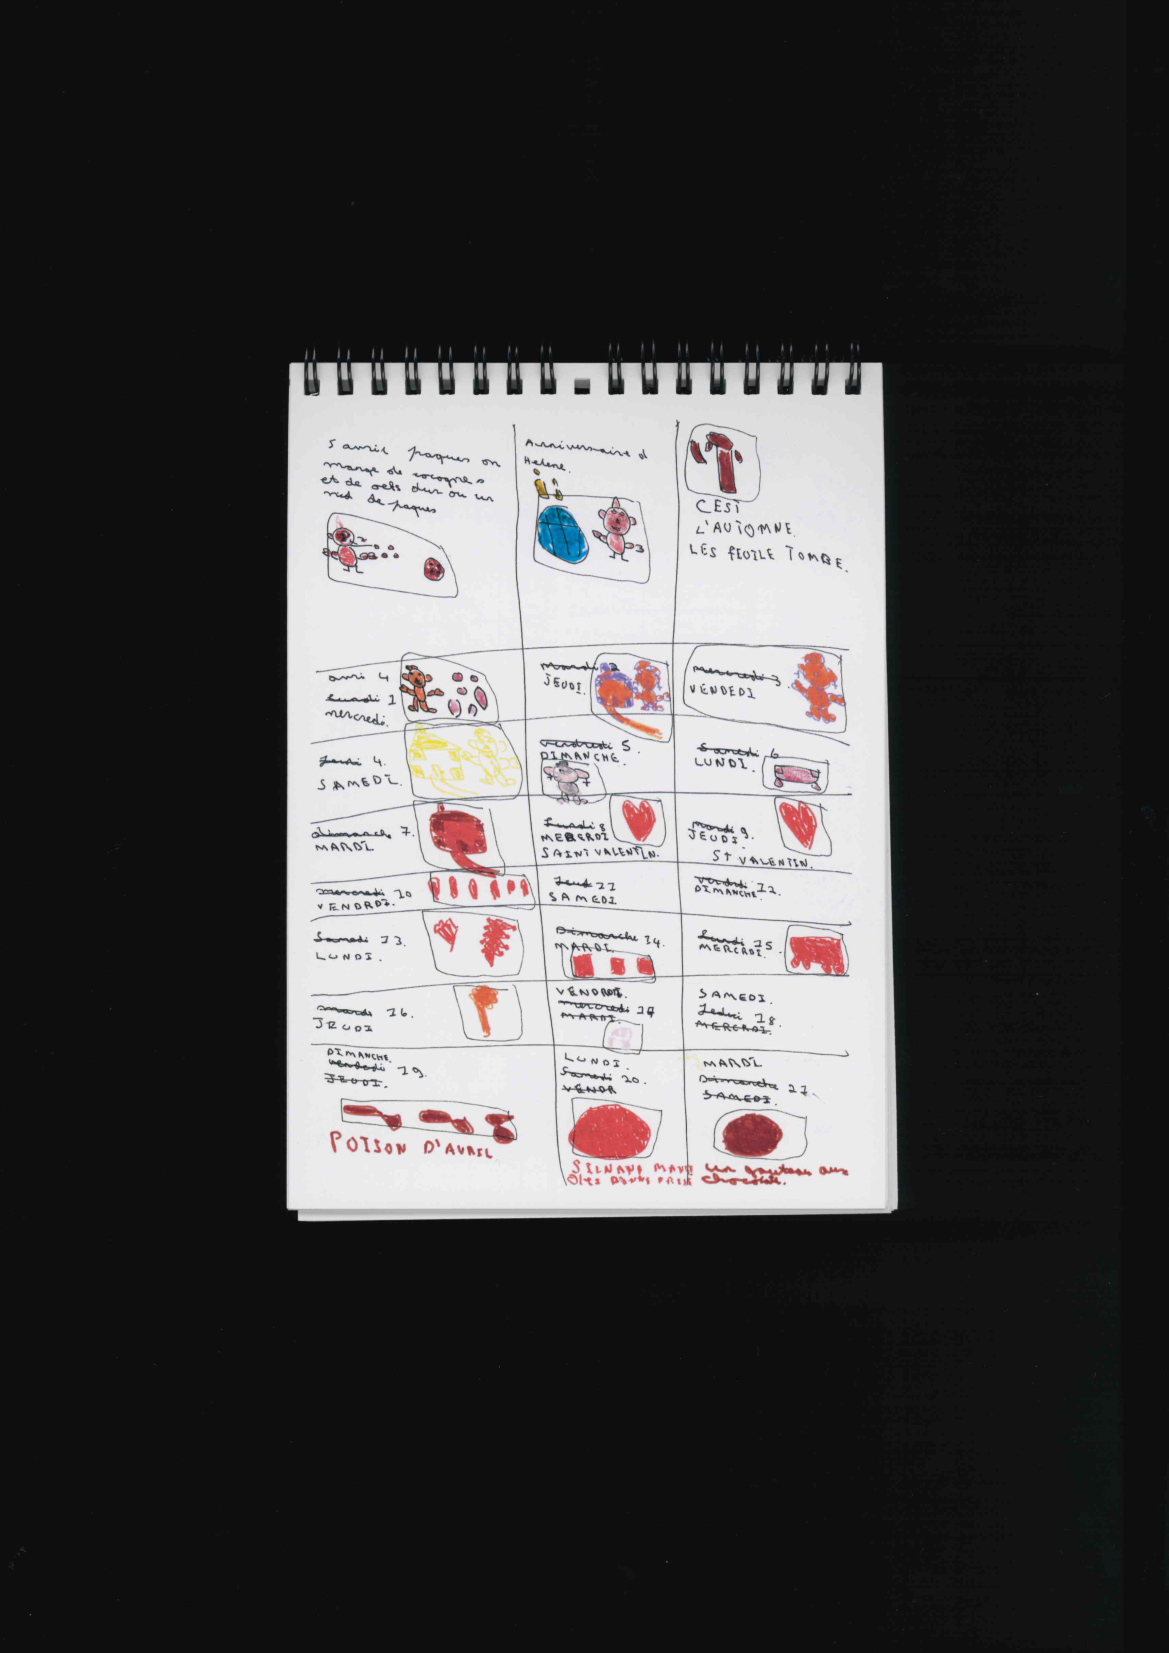 5 avril paques on
mange de cocognes
et de oefs dur ou un
nid de paques
Anniversaire d
Helene.
CEST
L'AUTOMNE.
LES FEUILE TOMBE.
avri 4
Lundi 1
mercredi.
Mardi 2
JEUDI.
mercredi 3
VENDEDI
Jeudi 4.
SAMEDI.
vendredi 5.
DIMANCHE.
Samedi 6
LUNDI.
dimanche 7.
MARDI
Lundi 8
MERCRDI
SAINT VALENTIN.
Mardi 9.
JEUDI.
ST VALENTIN.
mercredi 10
VENDRDI.
Jeudi 11
SAMEDI
Vendrdi 12.
DIMANCHE.
Samedi 13.
LUNDI.
Dimanche 14.
MARDI
Lundi 15
MERCRDI.
mardi 16.
JEUDI
VENDRDI.
mercredi 17
MARDI.
SAMEDI.
Jedui 18.
MERCRDI.
DIMANCHE.
vendedi 19.
JEUDI.
LUNDI.
Samedi 20.
VENDR
MARDI
Dimanche 21.
SAMEDI.
POISON D'AVRIL
un gauteau aux
chocolat.